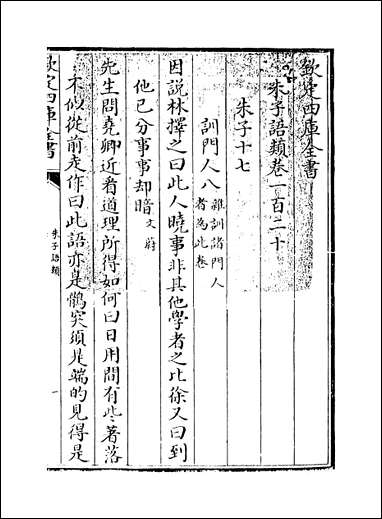 欽定四庫全書
朱子語類卷一百二十
朱子十七
訓門人八
雜訓諸門人
者為此卷
因說林擇之曰此人曉事非其他學者之比徐又曰到
他已分事事却暗文蔚
先生問堯卿近看道理所得如何曰日用間有些著落
不似從前走作曰此語亦是鶻突須是端的見得是
欽定四庫全書
朱子語類
一